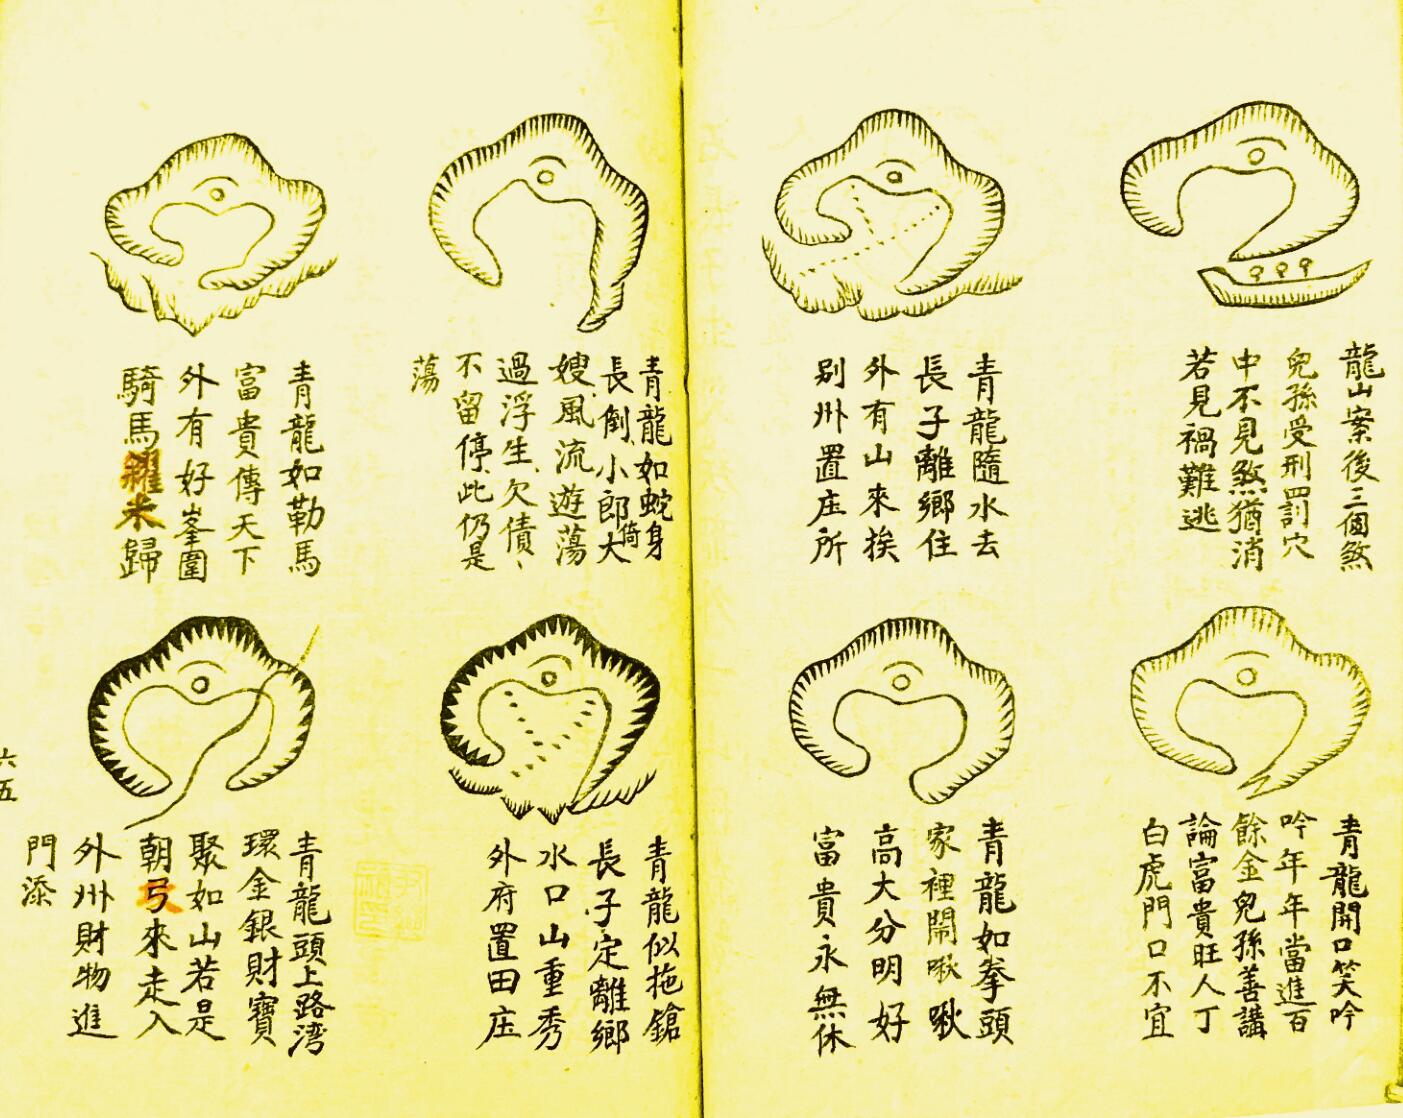 龍山案後三個煞
兒孫受刑罰穴
中不見煞猶消
若見禍難逃
青龍隨水去
長子離鄉住
外有山來挨
别州置庄所
青龍如蛇身
長倒小郎倚大
嫂風流遊蕩
過浮生欠債
不留停此仍是
蕩
青龍如勒馬
富貴傳天下
外有好峯圍
騎馬糶米歸
青龍開口笑吟
吟年年當進百
餘金兒孫善講
論富貴旺人丁
白虎門口不宜
青龍如拳頭
家裡鬧啾啾
高大分明好
富貴永無休
青龍似拖鎗
長子定離鄉
水口山重秀
外府置田庄
青龍頭上路湾
環金銀財寶
聚如山若是
朝弓來走入
外州財物進
門添
六五